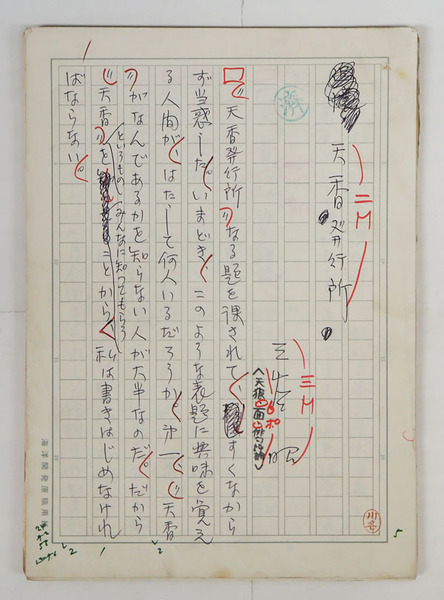 天香発行所
二H
三谷 昭
三H
6ポ
"天香発行所"なる題を課されて、すくなから
ず当惑した。いまどき、このような表題に興味を覚え
る人間が、はたして何人いるだろうか、第一、"天香
"がなんであるかを知らない人が大半なのだ。だから
というもの みんなに知ってもらう
"天香"を ことから、私は書きはじめなけれ
ばならない。
海洋開発原稿用
川名
5